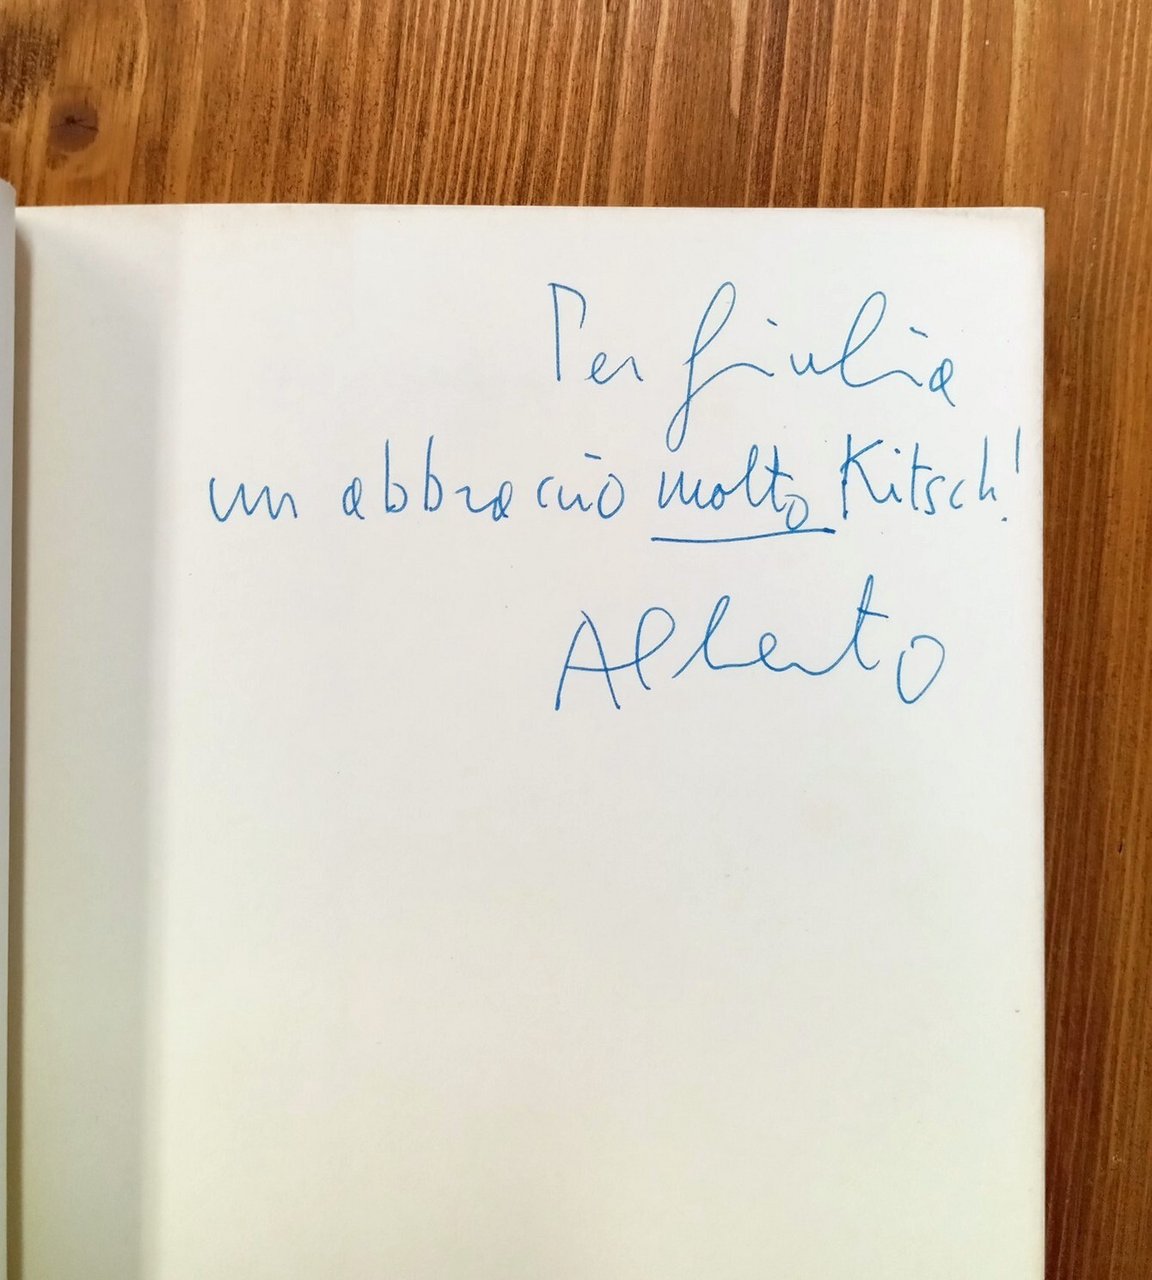 Per Giulia
un abbraccio molto Kitsch!
Alberto